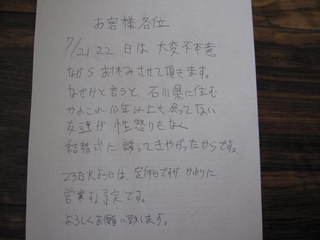 お客様各位
7/21 22 日は 大変不本意
ながら お休みさせて頂きます。
なぜかと言うと 石川県に住む
かれこれ10年以上も会ってない
友達が 性懲りもなく
結婚式に誘ってきやがったからです。
23日火よう日は、定休日ですが かわりに
営業する予定です。
よろしくお願い致します。